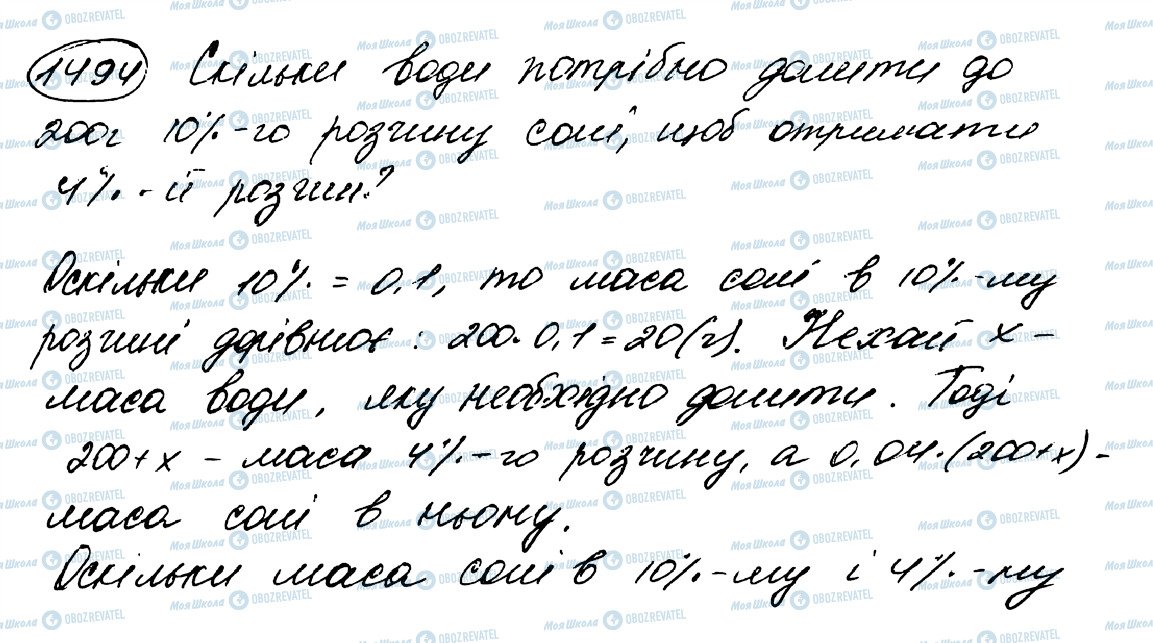 1494 Скільки води потрібно долити до
200г 10%-го розчину солі, щоб отримати
4%-ії розчин?
Оскільки 10% = 0,1, то маса солі в 10%-му
розчині дорівнює: 200·0,1=20(г). Нехай x –
маса води, яку необхідно долити. Тоді
200+x – маса 4%-го розчину, а 0,04·(200+x) –
маса солі в ньому.
Оскільки маса солі в 10%-му і 4%-му